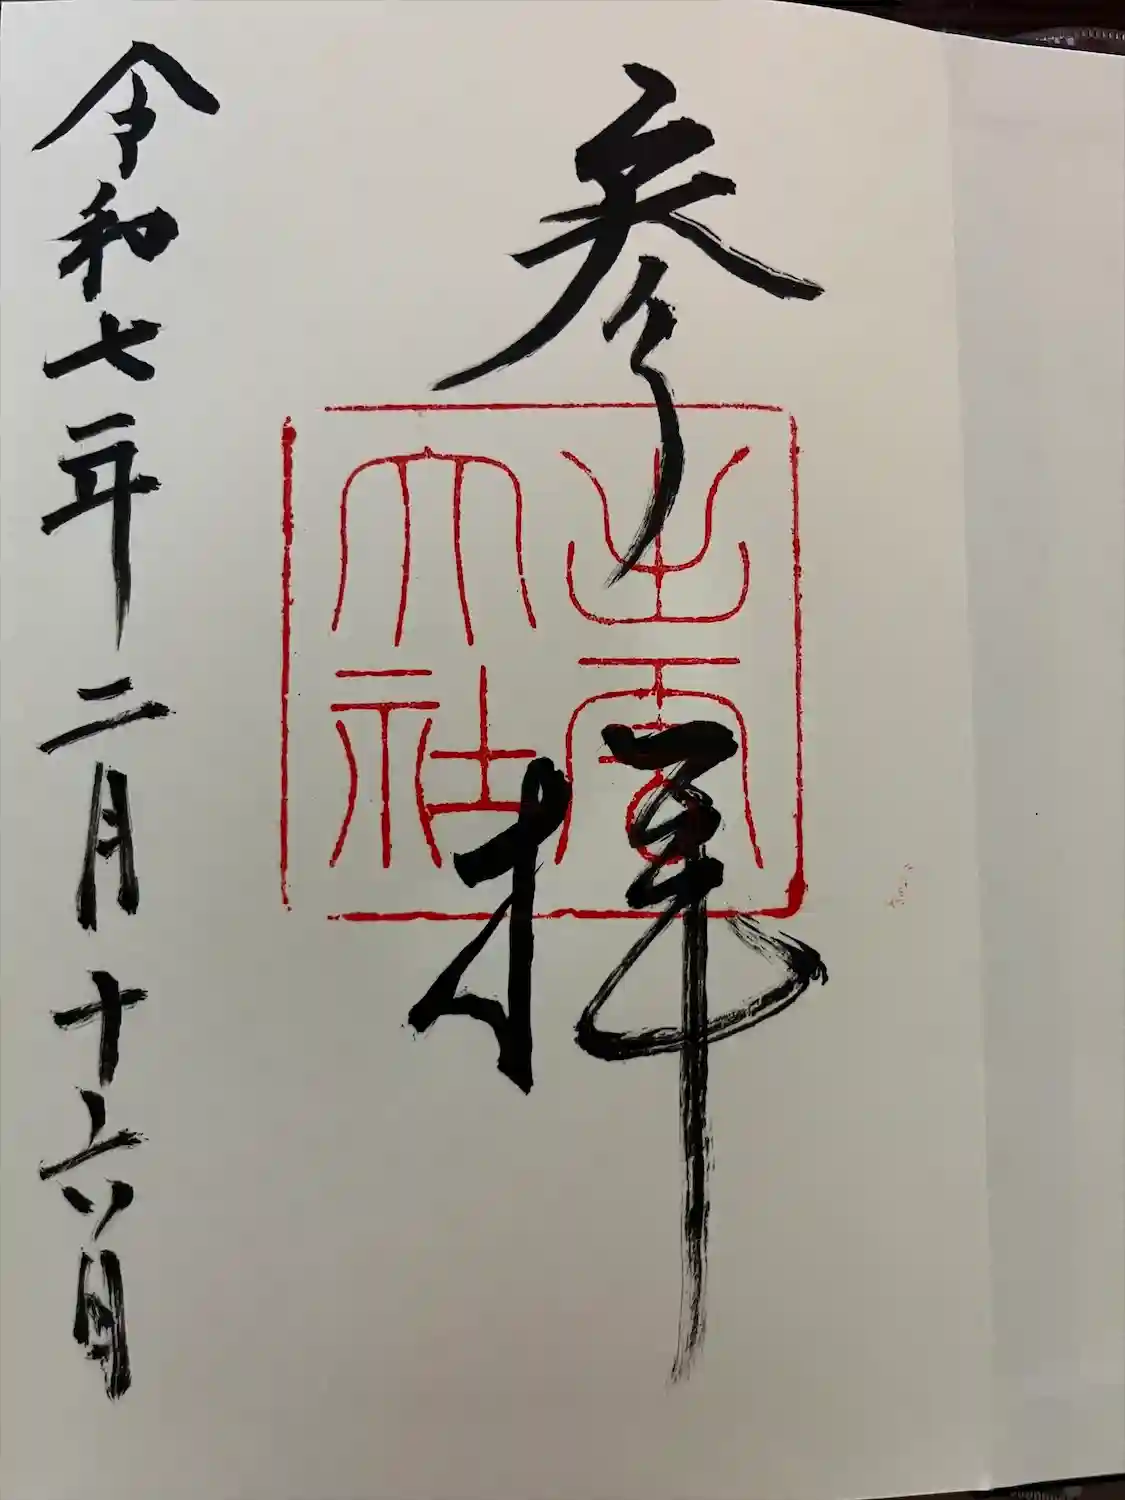 参拝
出雲大社
令和七年二月十六日